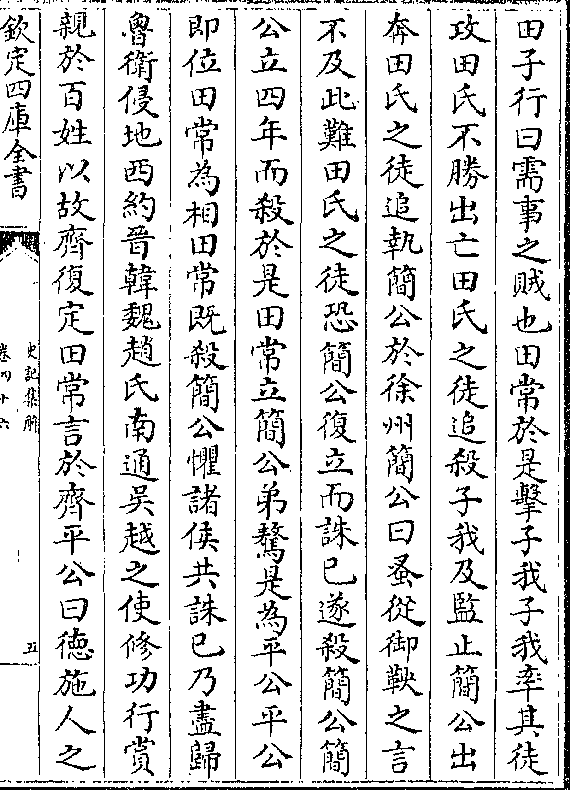 田子行曰需事之賊也田常於是擊子我子我率其徒
攻田氏不勝出亡田氏之徒追殺子我及監止簡公出
奔田氏之徒追執簡公於徐州簡公曰蚤從御鞅之言
不及此難田氏之徒恐簡公復立而誅已遂殺簡公簡
公立四年而殺於是田常立簡公弟驁是為平公平公
即位田常為相田常既殺簡公懼諸侯共誅已乃盡歸
魯衛侵地西約晉韓魏趙氏南通吳越之使修功行賞
親於百姓以故齊復定田常言於齊平公曰德施人之
欽定四庫全書
史記集解
卷四十六
五